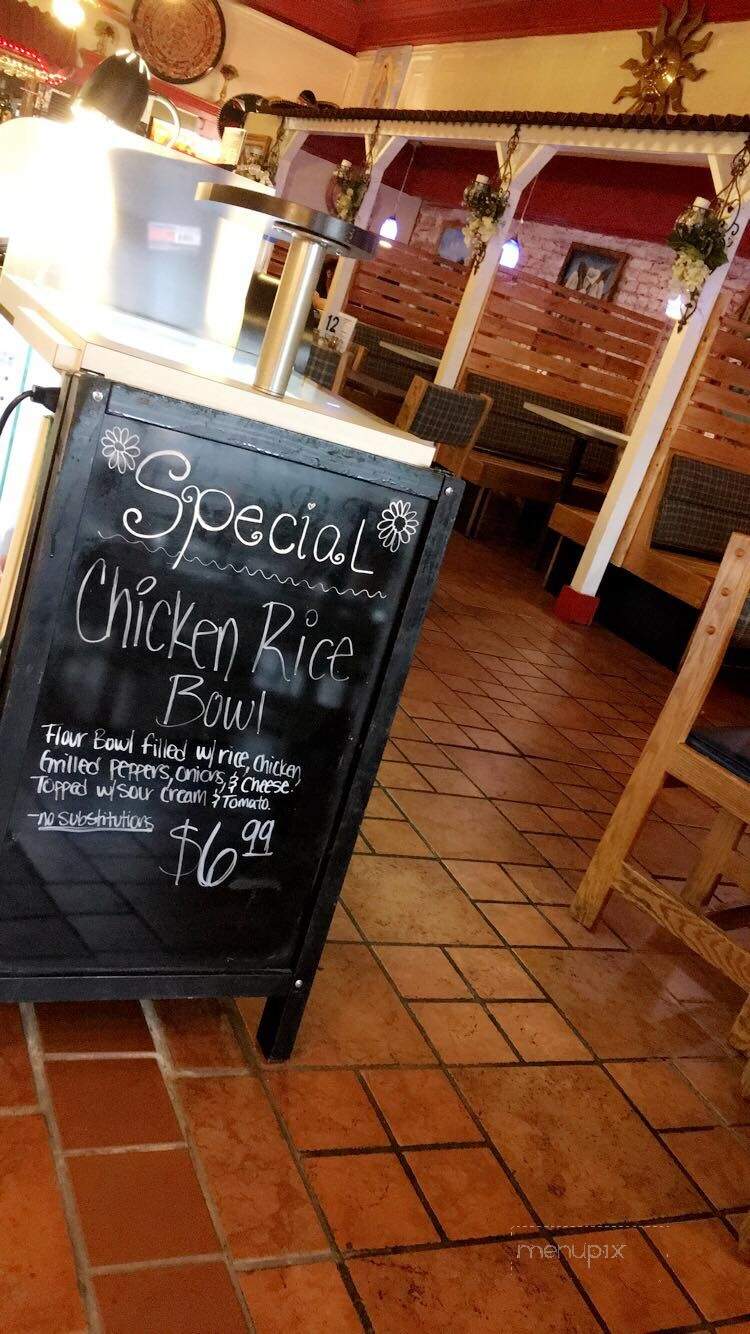 12
Special
Chicken Rice
Bowl
Flour Bowl filled w/ rice, chicken,
Grilled Peppers, onions, & cheese.
Topped w/ sour cream & Tomato.
-no substitutions
$6.99
menupix